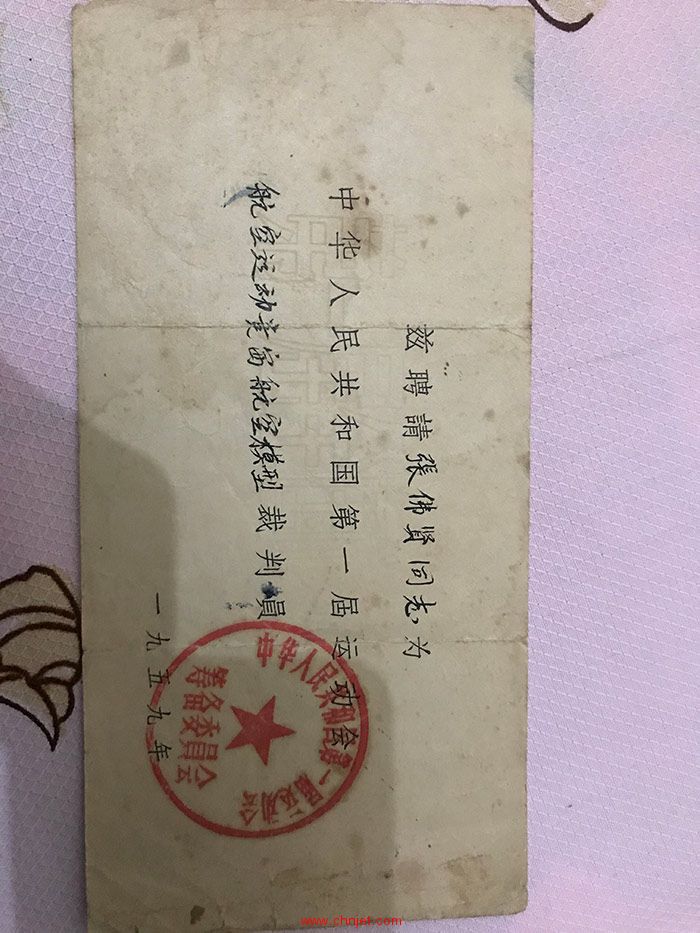 兹聘請張佛贤同志，为
中华人民共和国第一届运动会
航空运动竞赛航空模型裁判員
一九五九年
中华人民共和国第一届运动会
筹备委員会
www.chnjet.com